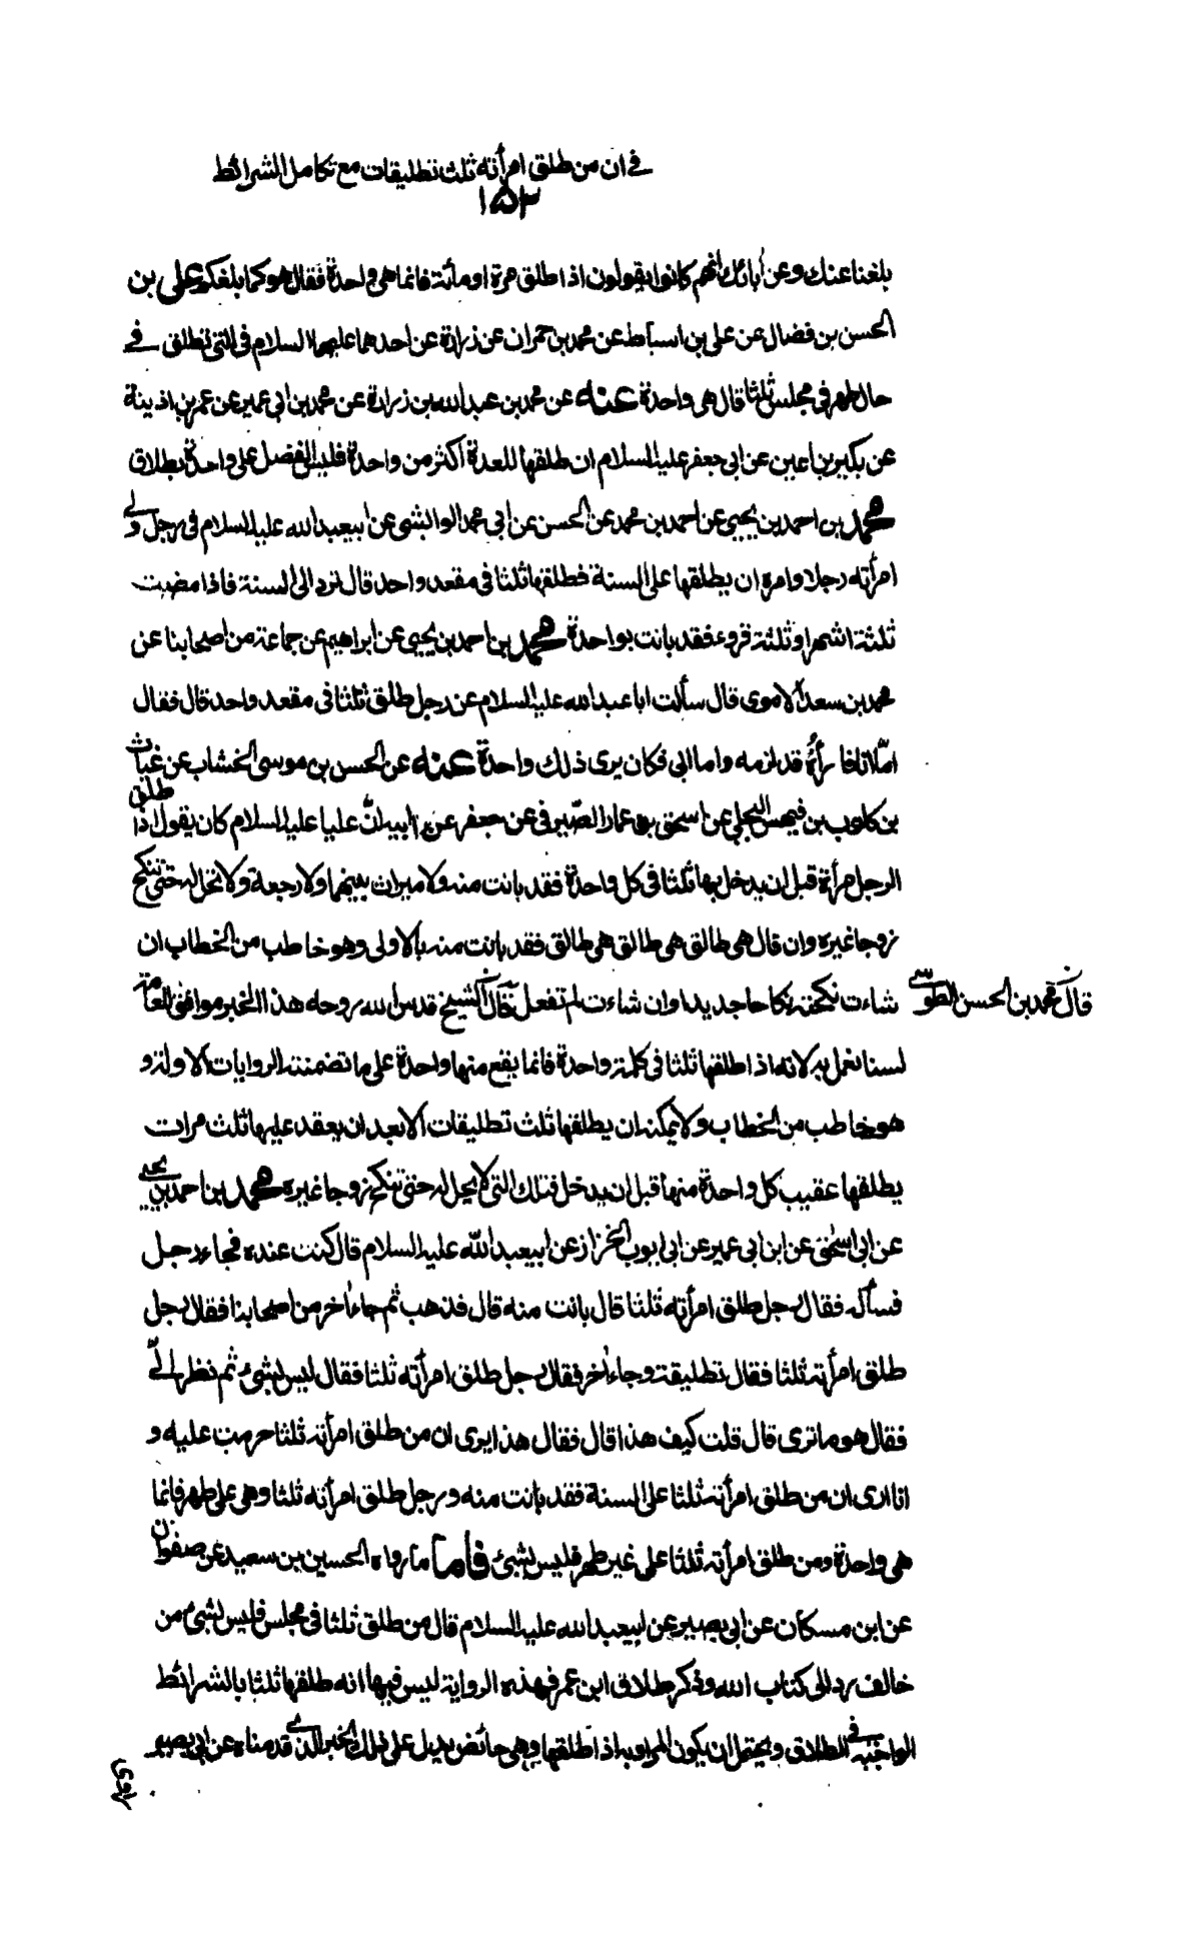 في ان من طلق امرأته ثلث تطليقات مع تكامل الشرائط
١٥٣
بلغنا عنك وعن آبائك انهم كانوا يقولون اذا طلق مرة او مائة فانما هي واحدة فقال هو كما بلغكم علي بن
الحسن بن فضال عن علي بن اسباط عن محمد بن حمران عن زرارة عن احدهما عليهما السلام في التي تطلق في
حال طهر في مجلس ثلثا قال هي واحدة عنه عن محمد بن عبد الله بن زرارة عن محمد بن ابي عمير عن عمر بن اذينة
عن بكير بن اعين عن ابي جعفر عليه السلام ان طلقها للعدة اكثر من واحدة فليس الفضل على واحدة بطلاق
محمد بن احمد بن يحيى عن احمد بن محمد عن الحسن عن ابي محمد الوابشي عن ابيعبد الله عليه السلام في رجل ولى
امرأته رجلا وامره ان يطلقها على السنة فطلقها ثلثا في مقعد واحد قال ترد الى السنة فاذا مضت
ثلثة اشهر او ثلثة قروء فقد بانت بواحدة محمد بن احمد بن يحيى عن ابراهيم عن جماعة من اصحابنا عن
محمد بن سعد الاموي قال سألت ابا عبد الله عليه السلام عن رجل طلق ثلثا في مقعد واحد قال فقال
اما انا فاراه قد لزمه واما ابي فكان يرى ذلك واحدة عنه عن الحسن بن موسى الخشاب عن غياث
بن كلوب بن فيهس البجلي عن اسحق بن عمار الصيرفي عن جعفر عن ابيه ان عليا عليه السلام كان يقول اذا طلق
الرجل امرأة قبل ان يدخل بها ثلثا في كل واحدة فقد بانت منه ولا ميراث بينهما ولا رجعة ولا تحل له حتى تنكح
زوجا غيره وان قال هي طالق هي طالق هي طالق فقد بانت منه بالاولى وهو خاطب من الخطاب ان
شاءت نكحته نكاحا جديدا وان شاءت لم تفعل قال الشيخ قدس الله روحه هذا الخبر موافق للعامة
قال محمد بن الحسن الطوسي
لسنا نعمل به لانه اذا طلقها ثلثا في كلمة واحدة فانما يقع منها واحدة على ما تضمنته الروايات الاولة و
هو خاطب من الخطاب ولا يمكنه ان يطلقها ثلث تطليقات الا بعد ان يعقد عليها ثلث مرات
يطلقها عقيب كل واحدة منها قبل ان يدخل فتلك التي لا يحل له حتى تنكح زوجا غيره محمد بن احمد بن يحيى
عن ابي اسحق عن ابن ابي عمير عن ابي ايوب الخزاز عن ابيعبد الله عليه السلام قال كنت عنده فجاء رجل
فسأله فقال رجل طلق امرأته ثلثا قال بانت منه قال فذهب ثم جاء آخر من اصحابنا فقال رجل
طلق امرأته ثلثا فقال تطليقة وجاء آخر فقال رجل طلق امرأته ثلثا فقال ليس بشئ ثم نظر الي
فقال هو ما ترى قال قلت كيف هذا قال فقال هذا يرى ان من طلق امرأته ثلثا حرمت عليه و
انا ارى ان من طلق امرأته ثلثا على السنة فقد بانت منه ورجل طلق امرأته ثلثا وهي على طهر فانما
هي واحدة ومن طلق امرأته ثلثا على غير طهر فليس بشئ فاما ما رواه الحسين بن سعيد عن صفوان
عن ابن مسكان عن ابي بصير عن ابيعبد الله عليه السلام قال من طلق ثلثا في مجلس فليس بشئ من
خالف رد الى كتاب الله وذكر طلاق ابن عمر فهذه الرواية ليس فيها انه طلقها ثلثا بالشرائط
الواجبة في الطلاق ويحتمل ان يكون المراد به اذا طلقها وهي حائض يدل على ذلك الخبر الذي قدمناه عن ابي بصير